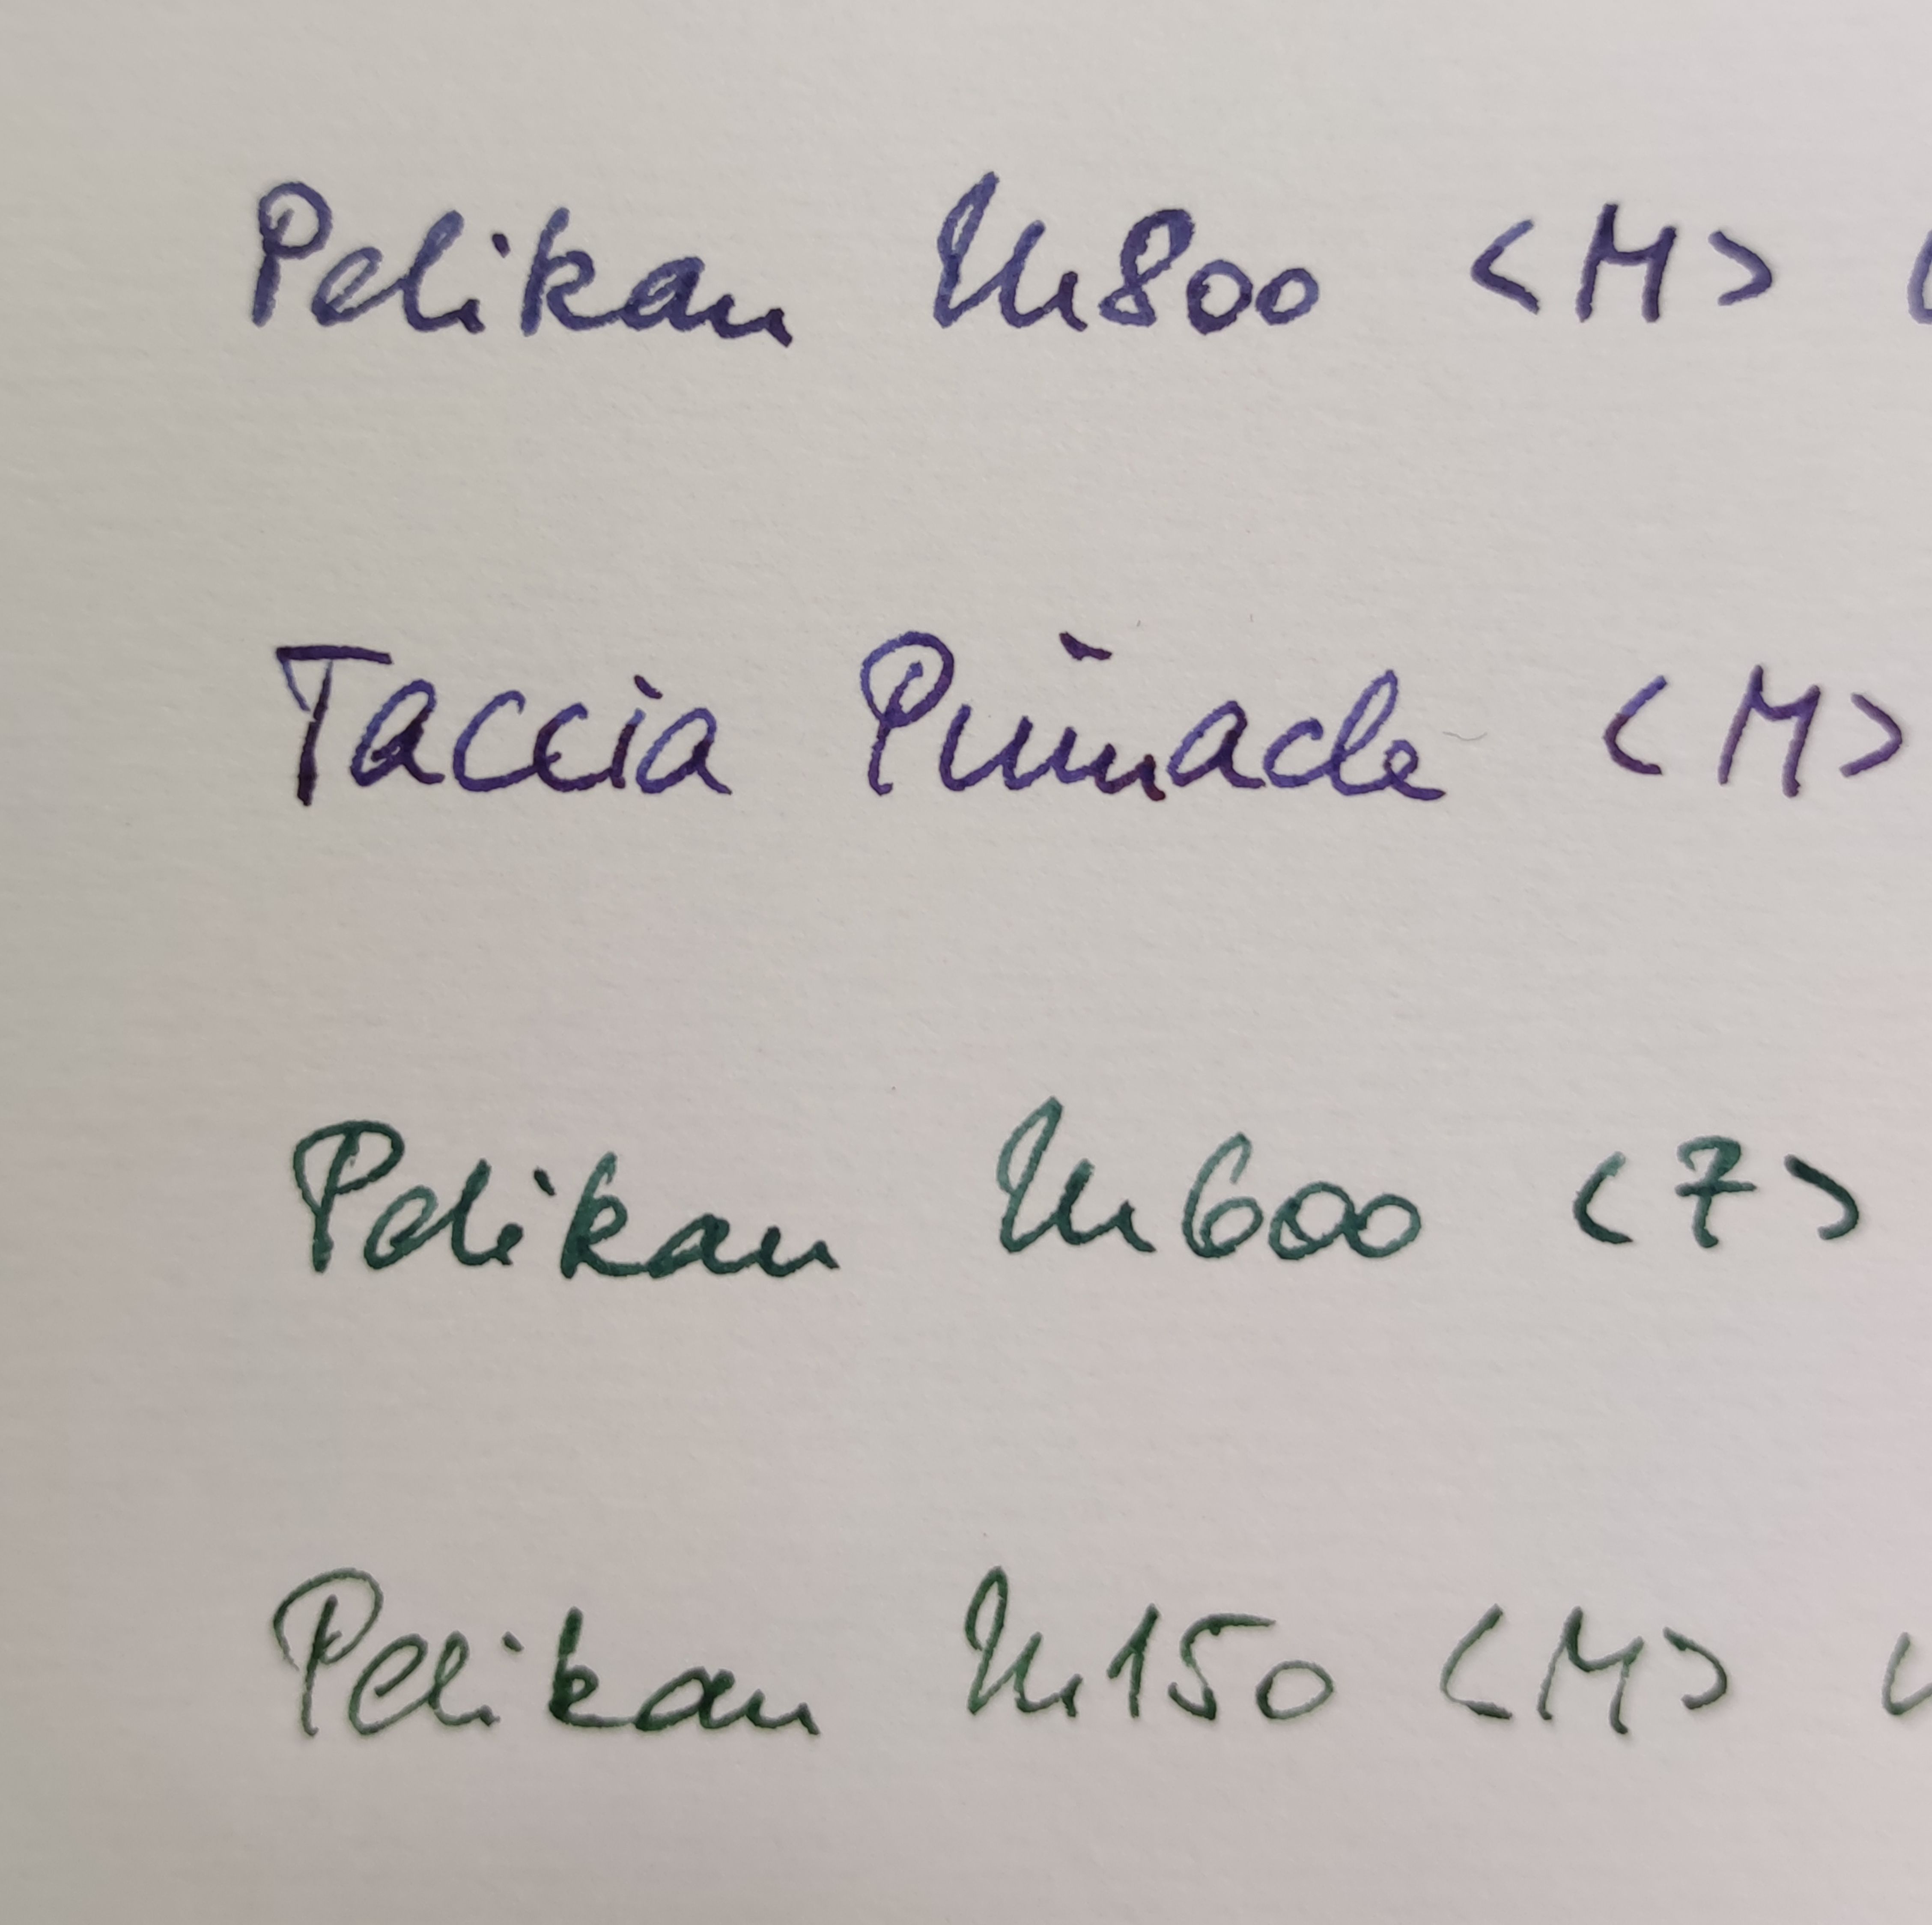 Pelikan M800 <M>
Taccia Pinnacle <M>
Pelikan M600 <F>
Pelikan M150 <M>